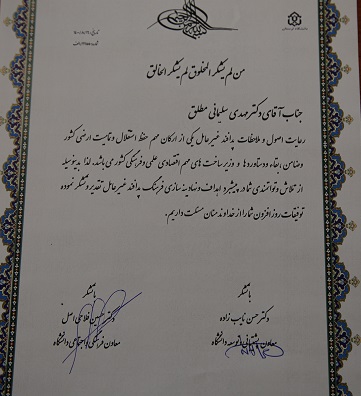 من لم یشکر المخلوق لم یشکر الخالق
جناب آقای دکتر مهدی سلیمانی مطلق
رعایت اصول و ملاحظات پدافند غیرعامل یکی از ارکان مهم حفظ استقلال و تمامیت ارضی کشور
و ضامن بقاء و دستاوردها و زیرساخت های مهم اقتصادی علمی و فرهنگی کشور می باشد. لذا بدینوسیله
از تلاش و توانمندی شما در پیشبرد اهداف و نهادینه سازی فرهنگ پدافند غیرعامل تقدیر و تشکر نموده
توفیقات روز افزون شما را از خداوند منان مسئلت داریم.
با تشکر
دکتر حسن نایب زاده
معاون پشتیبانی و توسعه دانشگاه
با تشکر
دکتر حسین فلاحی اصل
معاون فرهنگی و اجتماعی دانشگاه